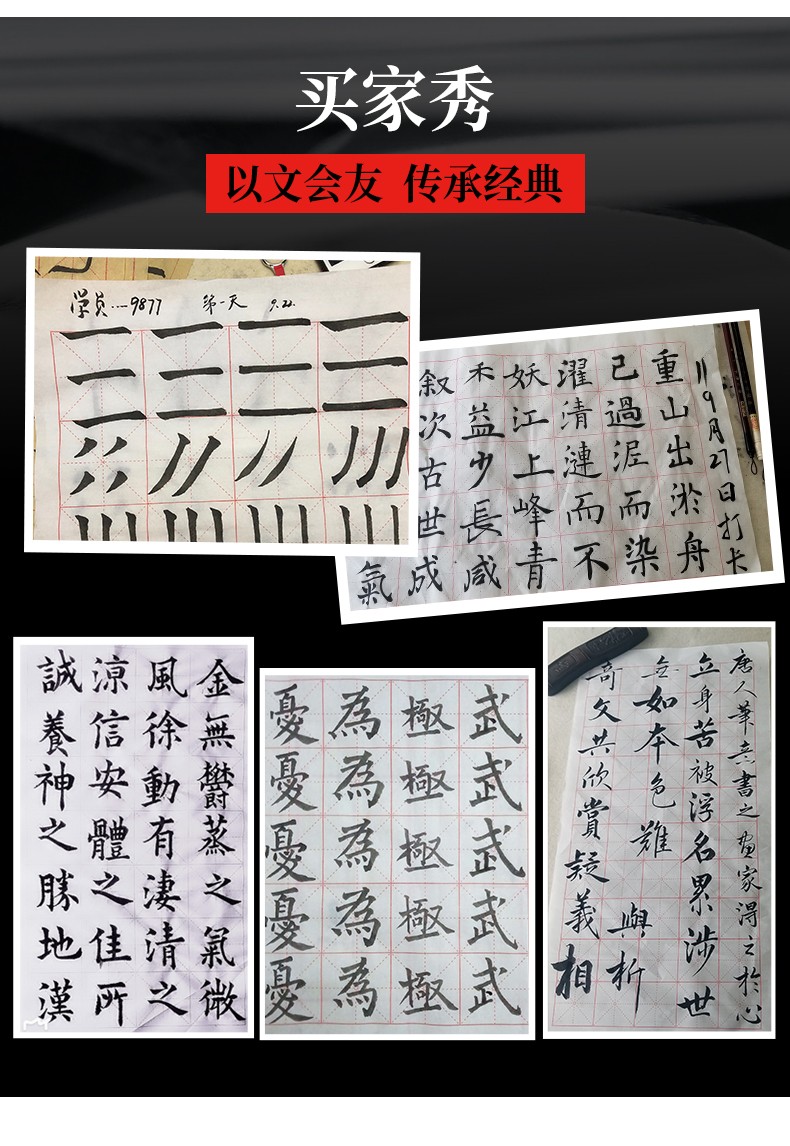 买家秀
以文会友 传承经典
学员....9877 第一天 9.22.
11 9月27日打卡
重山出淤舟
己過泥而染
濯清漣而不
妖江上峰青
禾益少長咸
叙次古世成
氣
金無鬱蒸之氣微
風徐動有淒清之
涼信安體之佳所
誠養神之勝地漢
武武武武武
極極極極極
為為為為為
憂憂憂憂憂
唐人筆意書之畫家得之於心
立身苦被浮名累涉世
無如本色難 與析
奇文共欣賞疑義相